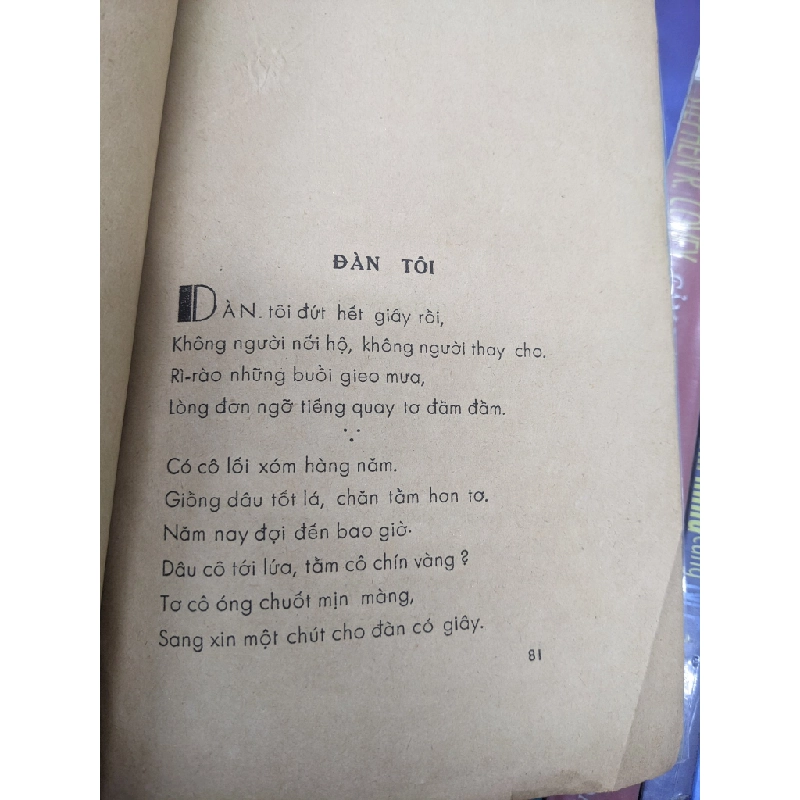 ĐÀN TÔI
ĐÀN. tôi đứt hết giây rồi,
Không người nối hộ, không người thay cho.
Rì-rào những buổi gieo mưa,
Lòng đơn ngỡ tiếng quay tơ đăm đằm.
Có cô lối xóm hàng năm.
Giồng dâu tốt lá, chăn tằm hơn tơ.
Năm nay đợi đến bao giờ.
Dâu cô tới lứa, tằm cô chín vàng?
Tơ cô óng chuốt mịn màng,
Sang xin một chút cho đàn có giây.
81
COVEY
cùng